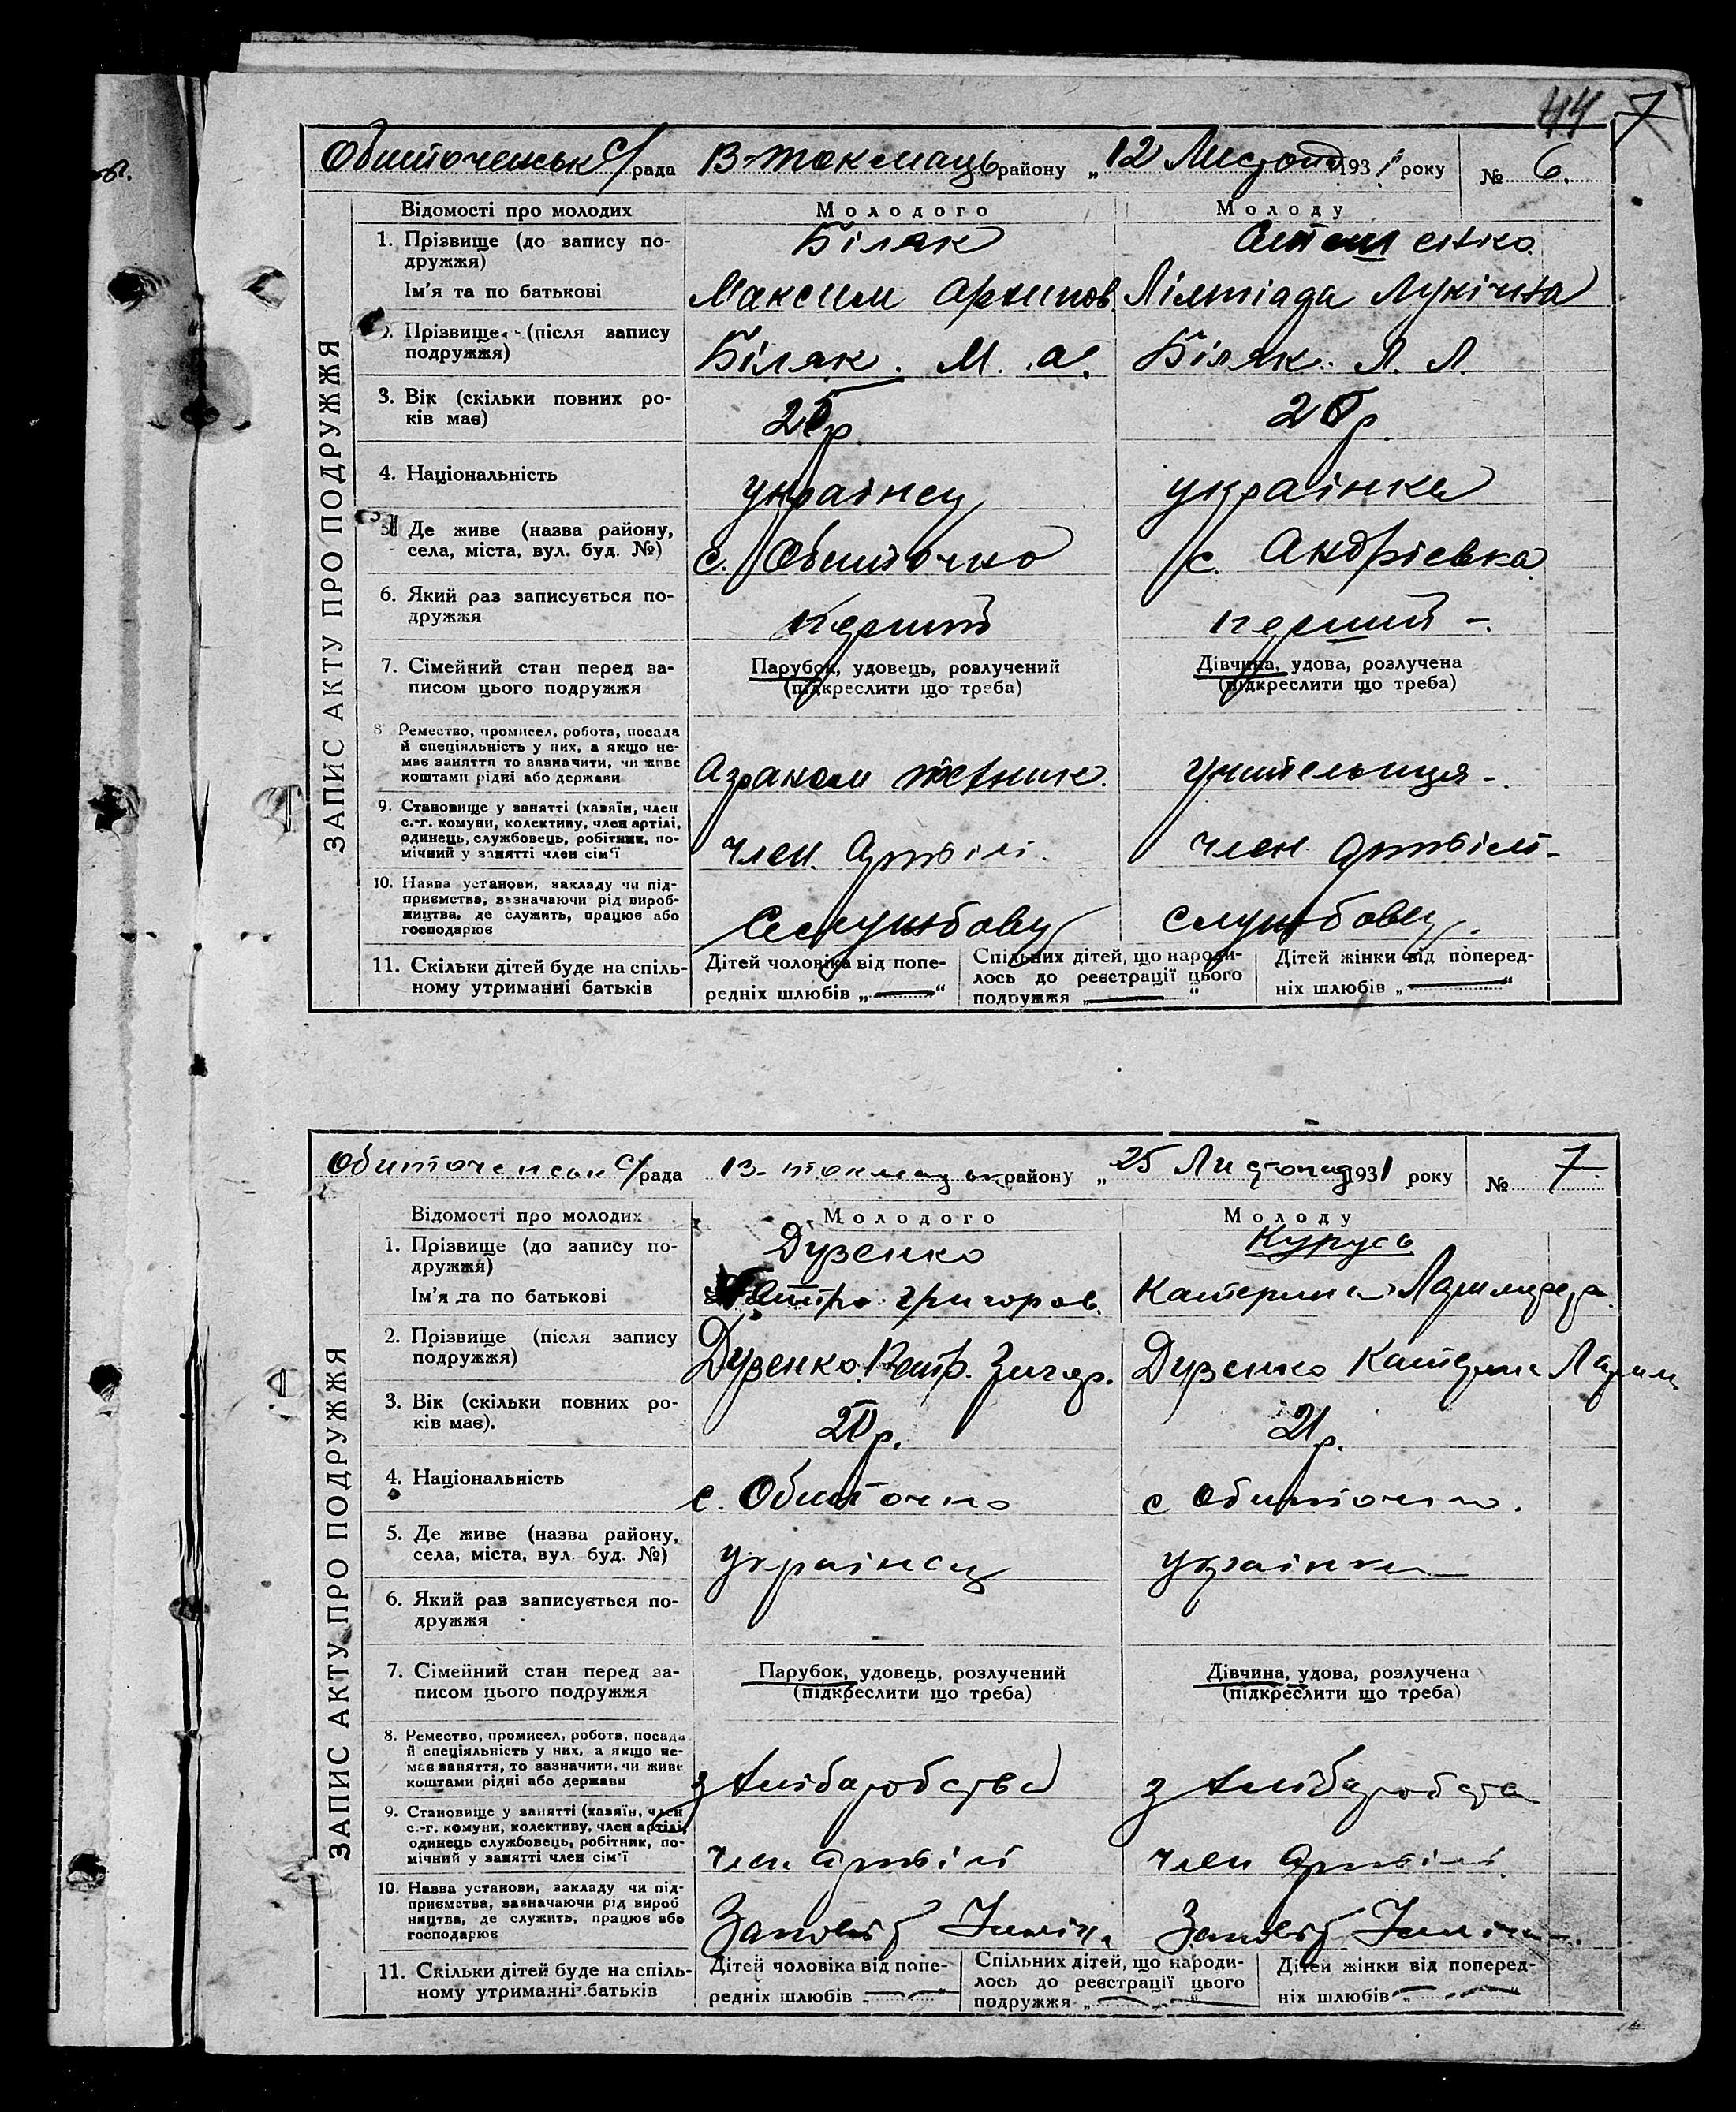 44 7
Обиточенськ с/рада В-Токмацьрайону „12 Листопад 1931 року № 6.
Відомості про молодих Молодого Молоду
1. Прізвище (до запису по-
дружжя) Біляк
Ім'я та по батькові Максим Архипов. Лукічна
2. Прізвище (після запису
подружжя) Біляк. М. А. Біляк. Л. Л.
3. Вік (скільки повних ро-
ків має)
4. Національність українец українка
5. Де живе (назва району,
села, міста, вул. буд. №) с. Обиточно с. Андрієвка
6. Який раз записується по-
дружжя перший перший -.
7. Сімейний стан перед за-
писом цього подружжя Парубок, удовець, розлучений
(підкреслити що треба) Дівчина, удова, розлучена
(підкреслити що треба)
8 Ремество, промисел, робота, посада
й спеціяльність у них, а якщо не-
має заняття то зазначити, чи живе
коштами рідні або держави учительиця-.
9. Становище у занятті (хазяїн, член
с.-г. комуни, колективу, член артілі,
одинець, службовець, робітник, по-
мічний у занятті член сім'ї член. Артілі. член Артілі-
10. Назва установи, закладу чи під-
приємства, зазначаючи рід вироб-
ництва, де служить, працює або
господарює службовец.
11. Скільки дітей буде на спіль-
ному утриманні батьків Дітей чоловіка від попе-
редніх шлюбів „—“ Спільних дітей, що народи-
лось до реєстрації цього
подружжя „—“ Дітей жінки від поперед-
ніх шлюбів „—“
ЗАПИС АКТУ ПРО ПОДРУЖЖЯ
Обиточенськ с/рада В-токмацьк району „25 Листопад 1931 року № 7
Відомості про молодих Молодого Молоду
1. Прізвище (до запису по-
дружжя) Дузенко Курусь
Ім'я та по батькові Григоров. Катерина
2. Прізвище (після запису
подружжя) Дузенко Петр. Григор. Дузенко Катерина
3. Вік (скільки повних ро-
ків має). 21р.
4. Національність с. Обиточно с Обиточно.
5. Де живе (назва району,
села, міста, вул. буд. №) українец українка
6. Який раз записується по-
дружжя
7. Сімейний стан перед за-
писом цього подружжя Парубок, удовець, розлучений
(підкреслити що треба) Дівчина, удова, розлучена
(підкреслити що треба)
8. Ремество, промисел, робота, посада
й спеціяльність у них, а якщо не-
має заняття, то зазначити, чи живе
коштами рідні або держави з хлібаробства з хлібаробства
9. Становище у занятті (хазяїн, член
с.-г. комуни, колективу, член артілі,
одинець службовець, робітник, по-
мічний у занятті член сім'ї член Артілі член Артілі
10. Назва установи, закладу чи під-
приємства, зазначаючи рід вироб
ництва, де служить, працює або
господарює Заповіт Ілліча Заповіт Ілліча-.
11. Скільки дітей буде на спіль-
ному утриманні батьків Дітей чоловіка від попе-
редніх шлюбів „—“ Спільних дітей, що народи-
лось до реєстрації цього
подружжя „—“ Дітей жінки від поперед-
ніх шлюбів „—“
ЗАПИС АКТУ ПРО ПОДРУЖЖЯ